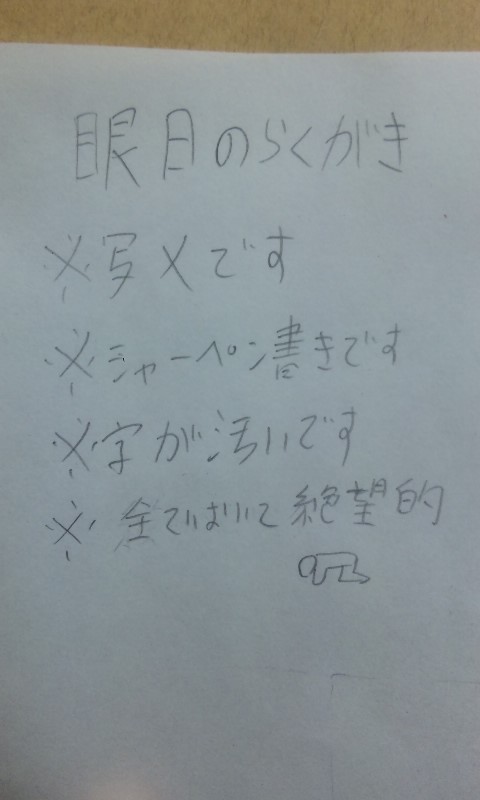 眼目のらくがき
※写メです
※シャーペン書きです
※字が汚いです
※全てにおいて絶望的